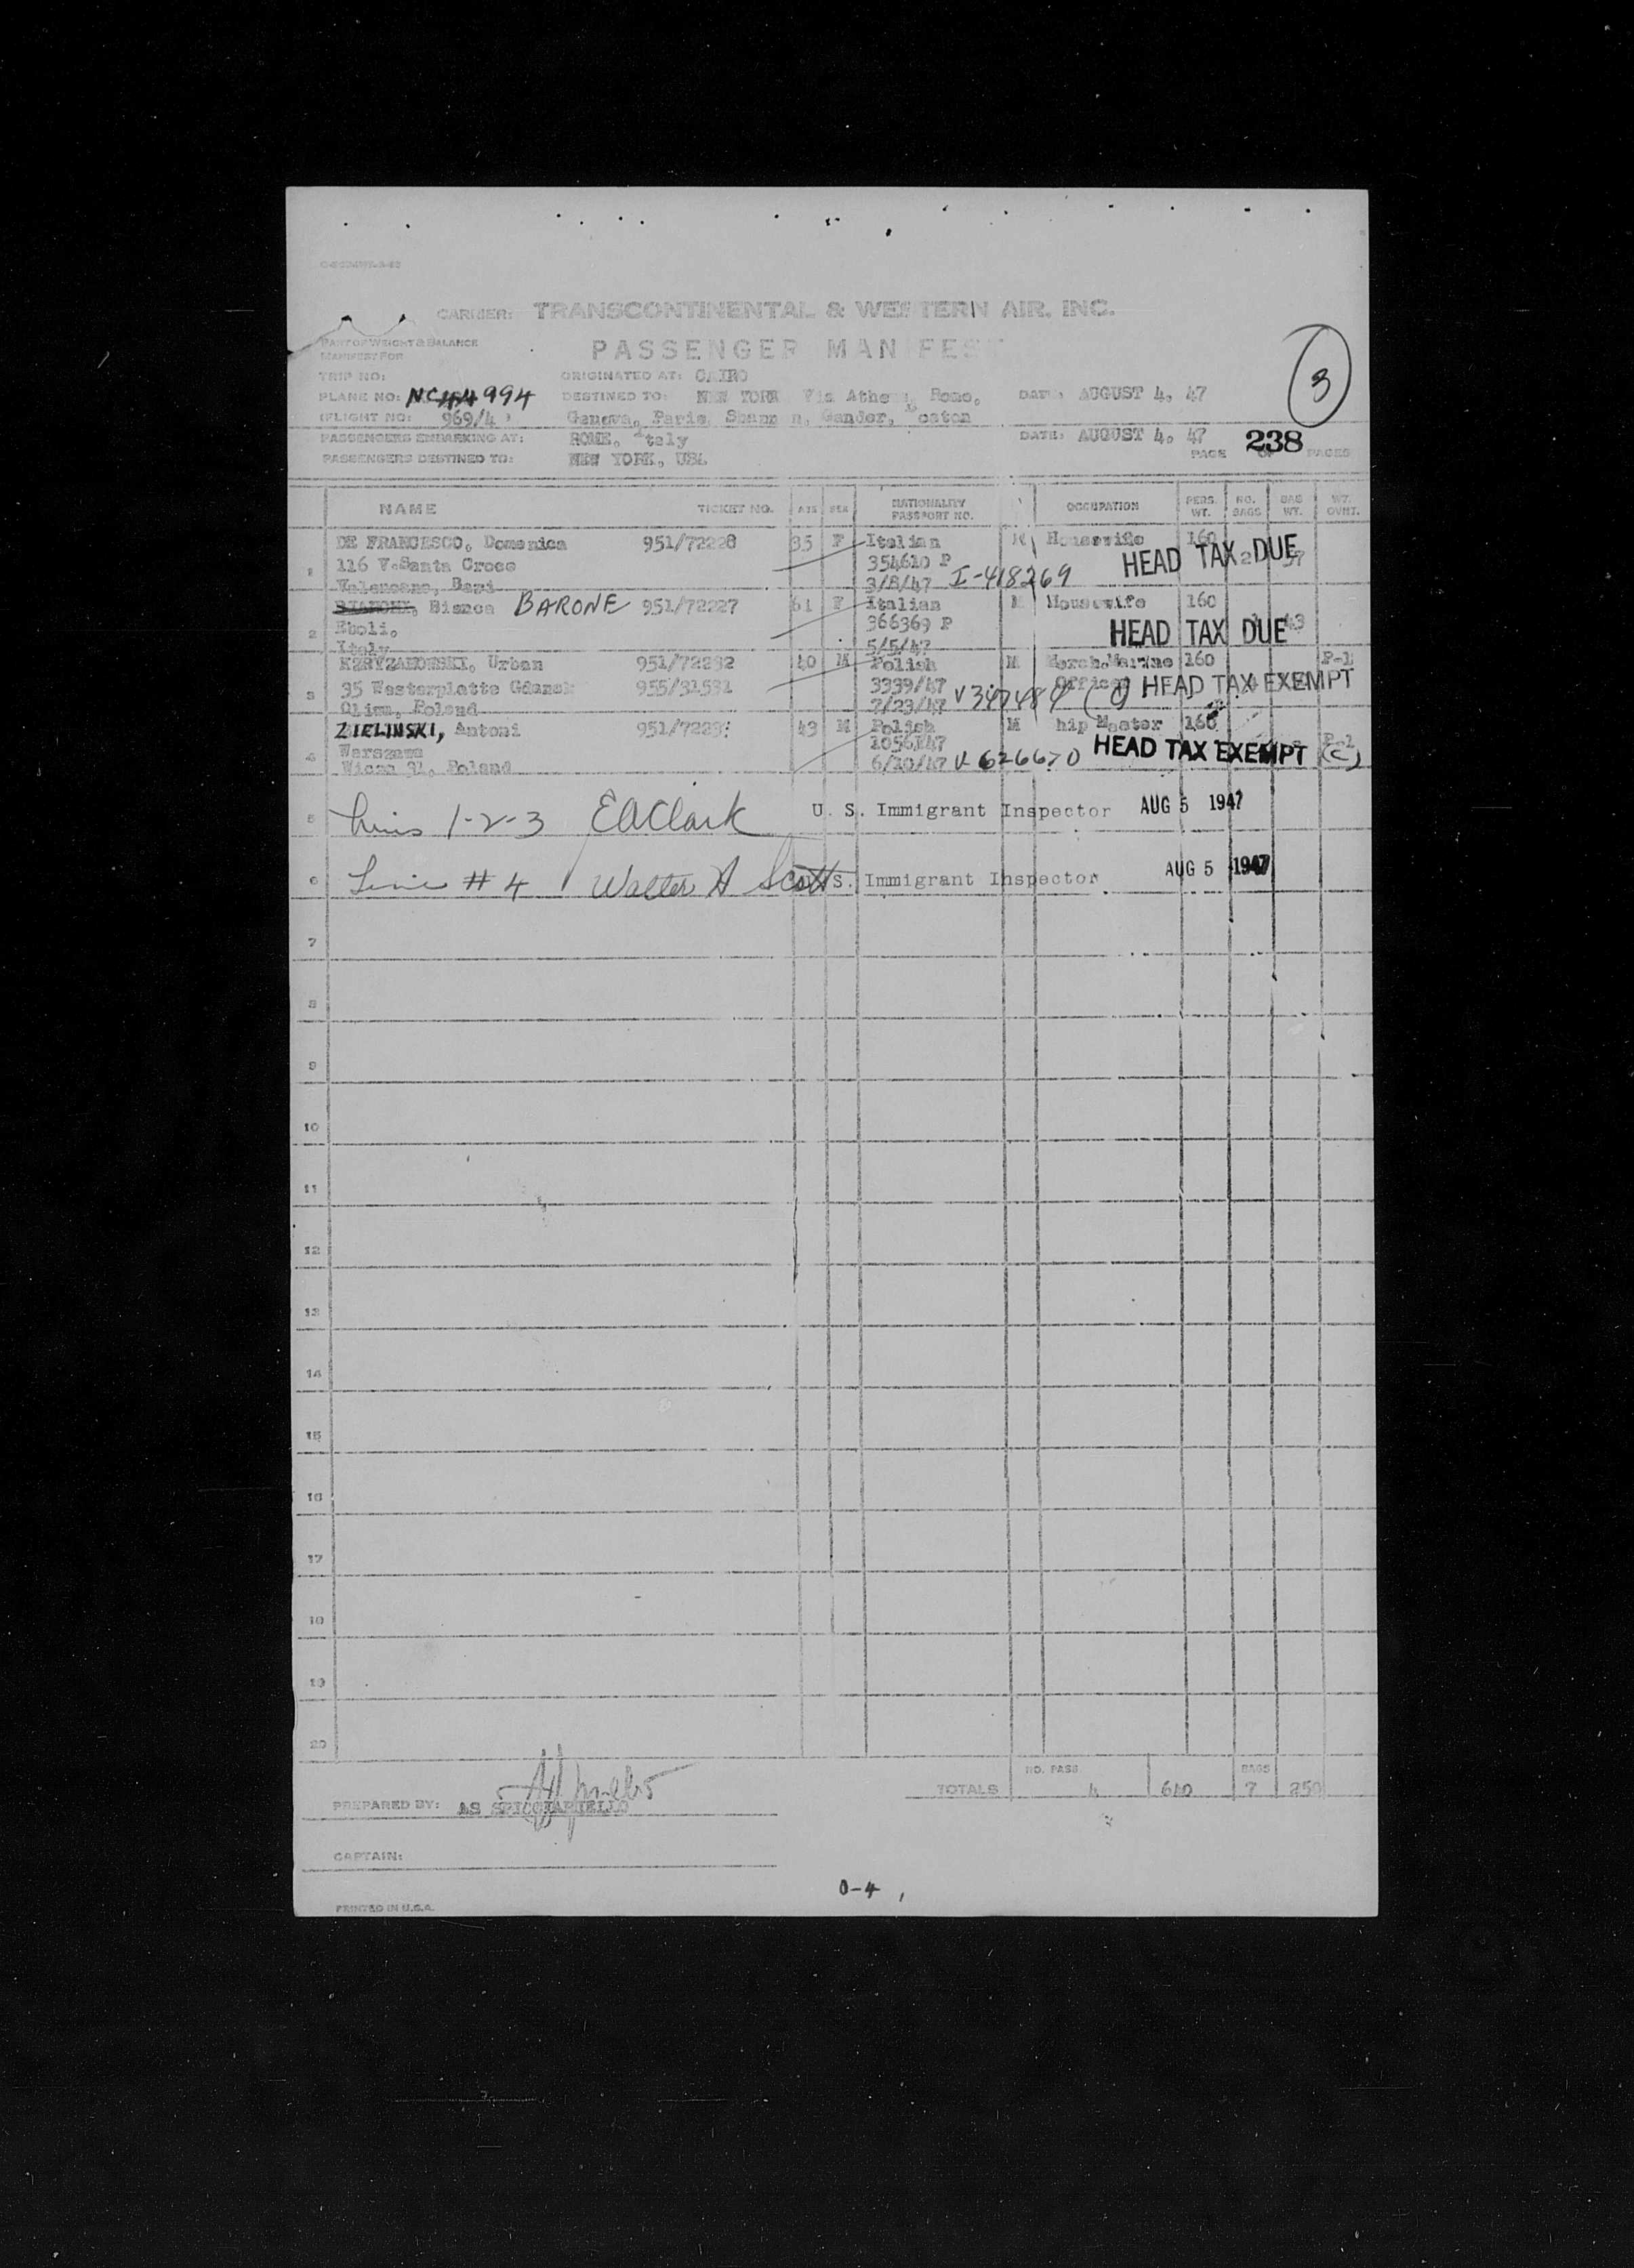 CARRIER: TRANSCONTINENTAL & WESTERN AIR, INC.
PART OF WEIGHT & BALANCE
MANIFEST FOR
PASSENGER MANIFEST
3
TRIP NO: ORIGINATED AT: CAIRO
PLANE NO: NC 994 DESTINED TO: NEW YORK Via Athens, Rome, DATE: AUGUST 4, 47
(FLIGHT NO: 969/4 ) Geneva, Paris, Shannon, Gander, oston
PASSENGERS EMBARKING AT: ROME, Italy DATE: AUGUST 4, 47
PASSENGERS DESTINED TO: NEW YORK, USA PAGE 238 OF PAGES
NAME TICKET NO. AGE SEX NATIONALITY PASSPORT NO. OCCUPATION PERS. WT. NO. BAGS BAG WT. WT. OVHT.
1 DE FRANCESCO, Domenica 951/72228 35 F Italian M Housewife 160
116 V.Santa Croce 354610 P HEAD TAX DUE 2 57
Valenzano, Bari 3/8/47 I-418269
2 Bianca BARONE 951/72227 61 F Italian M Housewife 160
Eboli, 366369 P HEAD TAX DUE 43
Italy 5/5/47
3 KZRYZANOWSKI, Urban 951/72232 40 M Polish M Merch.Marine 160 P-1
35 Westerplatte Gdansk 955/31531 3339/47 Officer HEAD TAX EXEMPT
Oliwa, Poland 7/23/47
4 ZIELINSKI, Antoni 951/7223 43 M Polish M hip Master 160
Warszawa HEAD TAX EXEMPT P-1 (C)
Poland 6/20/47 V 626670
5 Lines 1-2-3 EAClark U. S. Immigrant Inspector AUG 5 1947
6 Line # 4 Walter A Scott U. S. Immigrant Inspector AUG 5 1947
7
8
9
10
11
12
13
14
15
16
17
18
19
20
NO. PASS BAGS
TOTALS 4 640 7 250
PREPARED BY: AS SPICCIARIELLO
CAPTAIN:
0-4
PRINTED IN U.S.A.